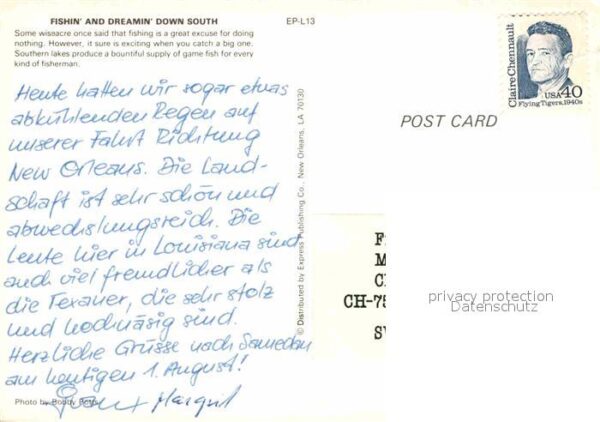 FISHIN' AND DREAMIN' DOWN SOUTH
EP-L13
Some wiseacre once said that fishing is a great excuse for doing
nothing. However, it sure is exciting when you catch a big one.
Southern lakes produce a bountiful supply of game fish for every
kind of fisherman.
Heute hatten wir sogar etwas
abkühlenden Regen auf
unserer Fahrt Richtung
New Orleans. Die Land-
schaft ist sehr schön und
abwechslungsreich. Die
Leute hier in Louisiana sind
auch viel freundlicher als
die Texaner, die sehr stolz
und hochnäsig sind.
Herzliche Grüsse nach Samedan
am heutigen 1. August!
Margrit
Photo by Bobby
© Distributed by Express Publishing Co., New Orleans, LA 70130
Claire Chennault
USA 40
Flying Tigers, 1940s
POST CARD
F
M
C
CH-75
privacy protection
Datenschutz